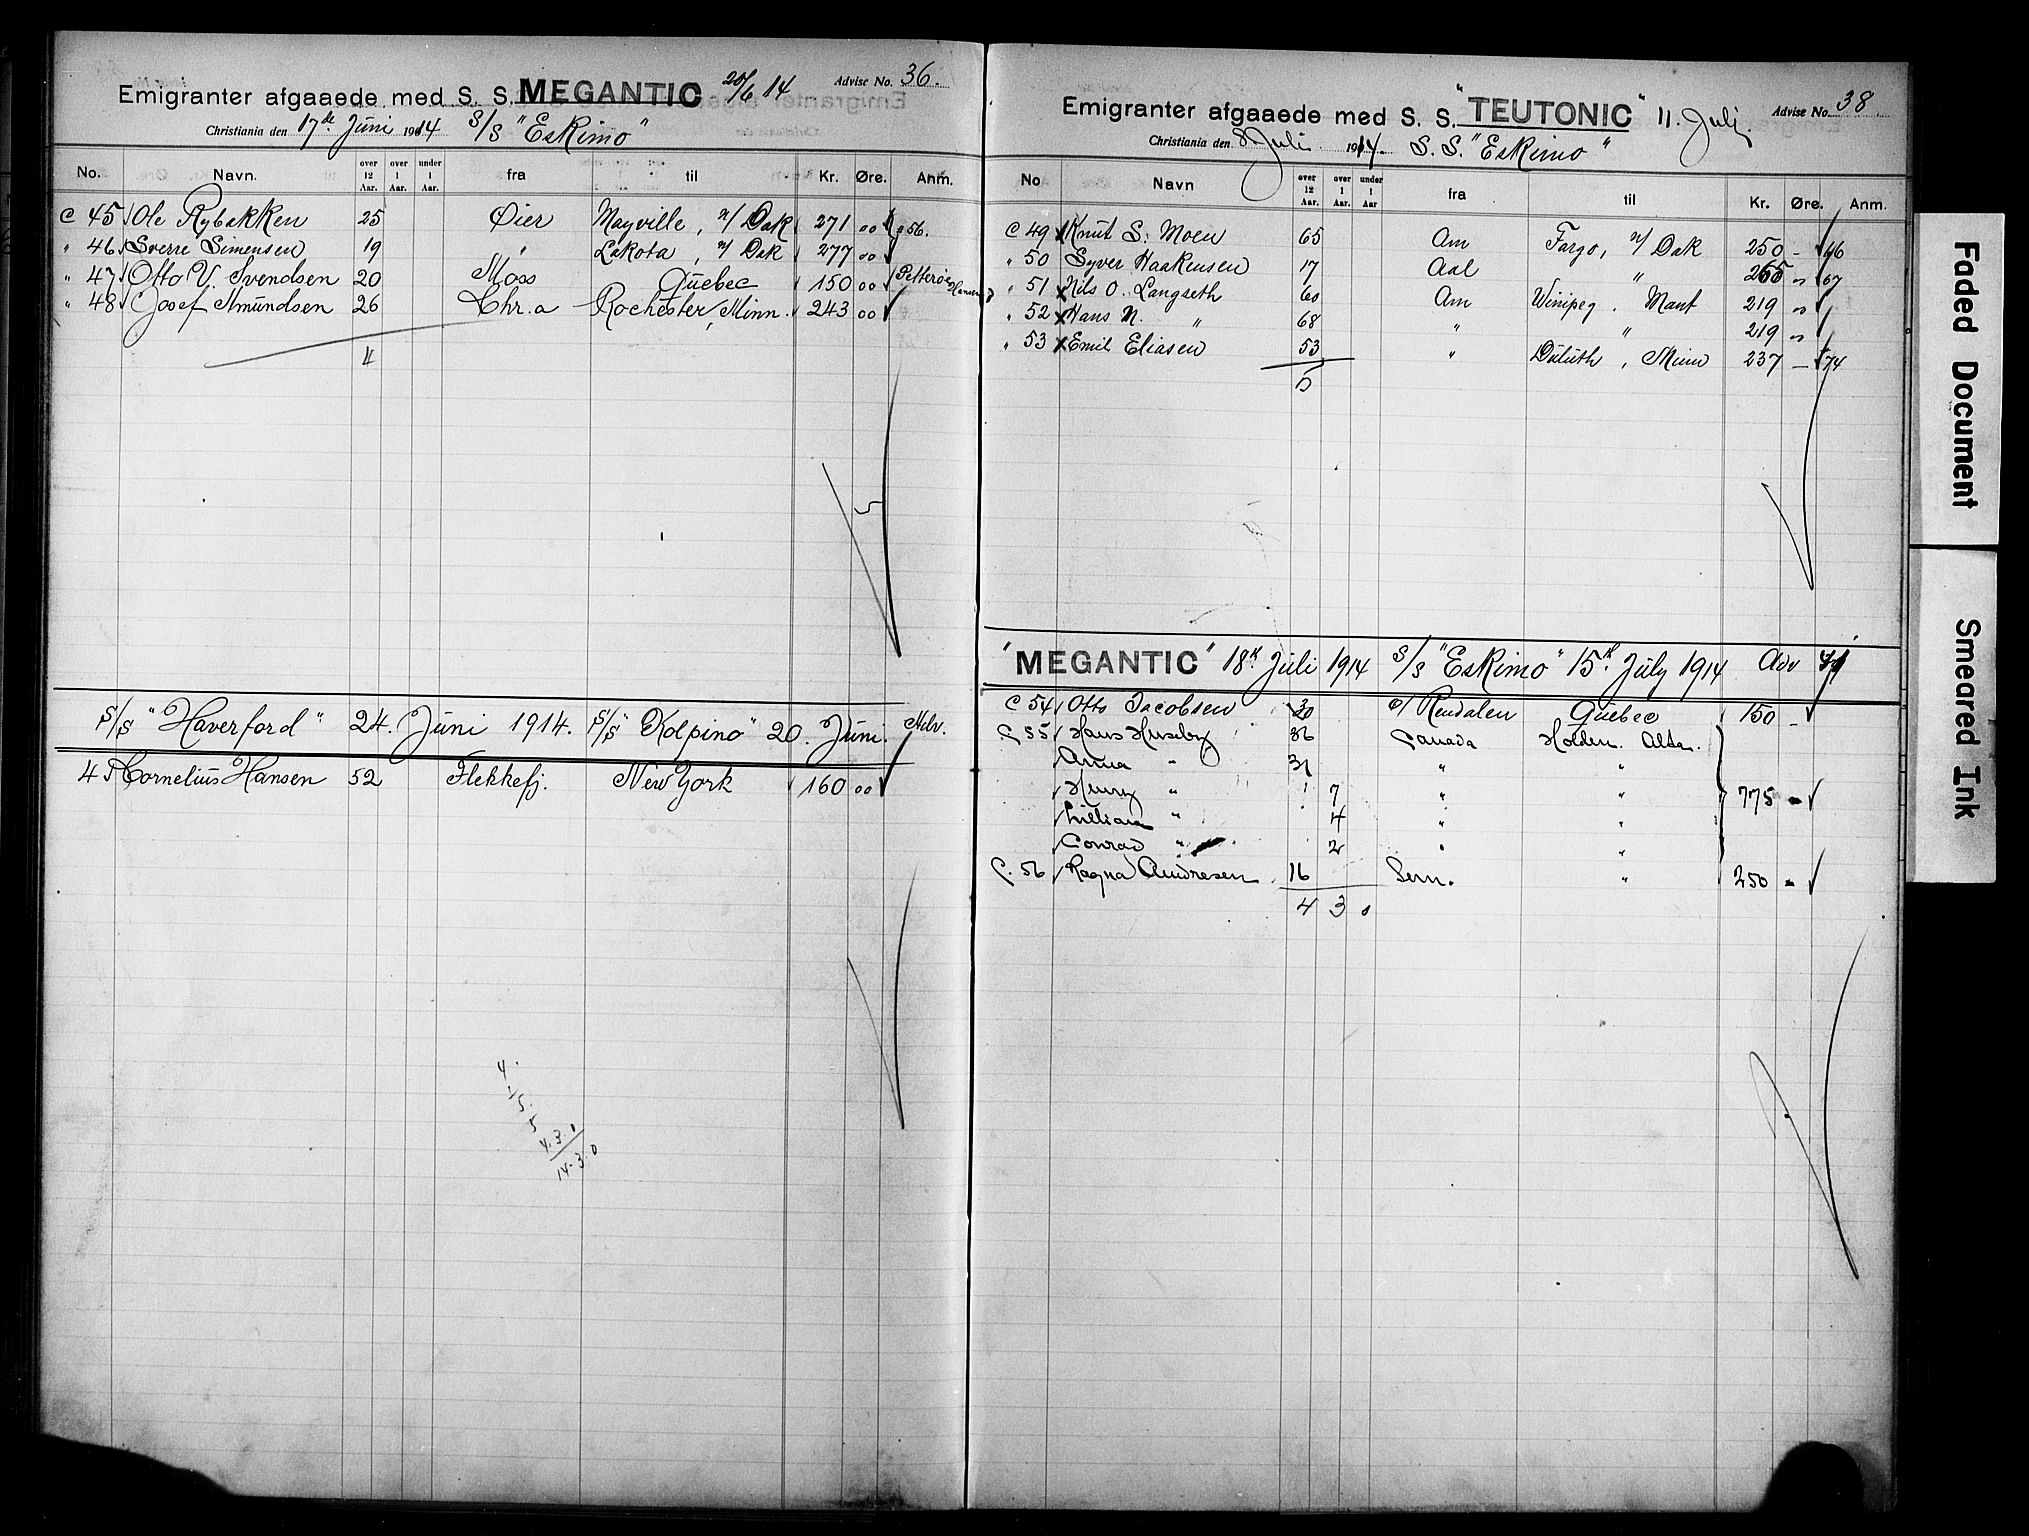 Advise No. 36.
Emigranter afgaaede med S. S. MEGANTIC 20/6 14
Christiania den 17de Juni 1914 S/S "Eskimo"
No. Navn. over 12 Aar. over 1 Aar. under 1 Aar. fra til Kr. Øre. Anm.
C 45 Ole Rybakken 25 Øier Mayville, N/Dak 271 00 56.
" 46 Sverre Simensen 19 " Lakota, N/Dak 277 00
" 47 Otto V. Svendsen 20 Moss Quebec 150 00
" 48 Josef Amundsen 26 Chr.a Rochester, Minn. 243 00
4
S/S "Haverford" 24. Juni 1914. S/S "Kolpino" 20. Juni.
45 Cornelius Hansen 52 Flekkefj. New York 160 00
4.
1
5.
5
4.3.0
14.3.0
Advise No. 38
Emigranter afgaaede med S. S. "TEUTONIC" 11. Juli.
Christiania den 8 Juli 1914. S.S. "Eskimo"
No Navn over 12 Aar. over 1 Aar. under 1 Aar fra til Kr. Øre. Anm.
C 49 Knut S. Moen 65 Am Fargo, N/Dak 250 - 66
" 50 Syver Haakensen 17 Aal " 265 " 67
" 51 Nils O. Langseth 60 Am Winipeg. Mant 219 "
" 52 Hans N. " 68 " " 219 "
" 53 Emil Eliasen 53 " Duluth, Minn 237 - 74
5
"MEGANTIC" 18th Juli 1914 S/S "Eskimo" 15th July 1914 Adv
C 54 Otto Jacobsen 30 Rendalen Quebec 150 -
C 55 Hans Huseby 36 Canada Holden. Alta.
Anna " 31 " "
Henry " 7 " " 775 -
Lillian " 4 " "
Conrad " 2 " "
C. 56 Ragna Andresen 16 Sem. " 250 -
4 3 0
Faded Document
Smeared Ink